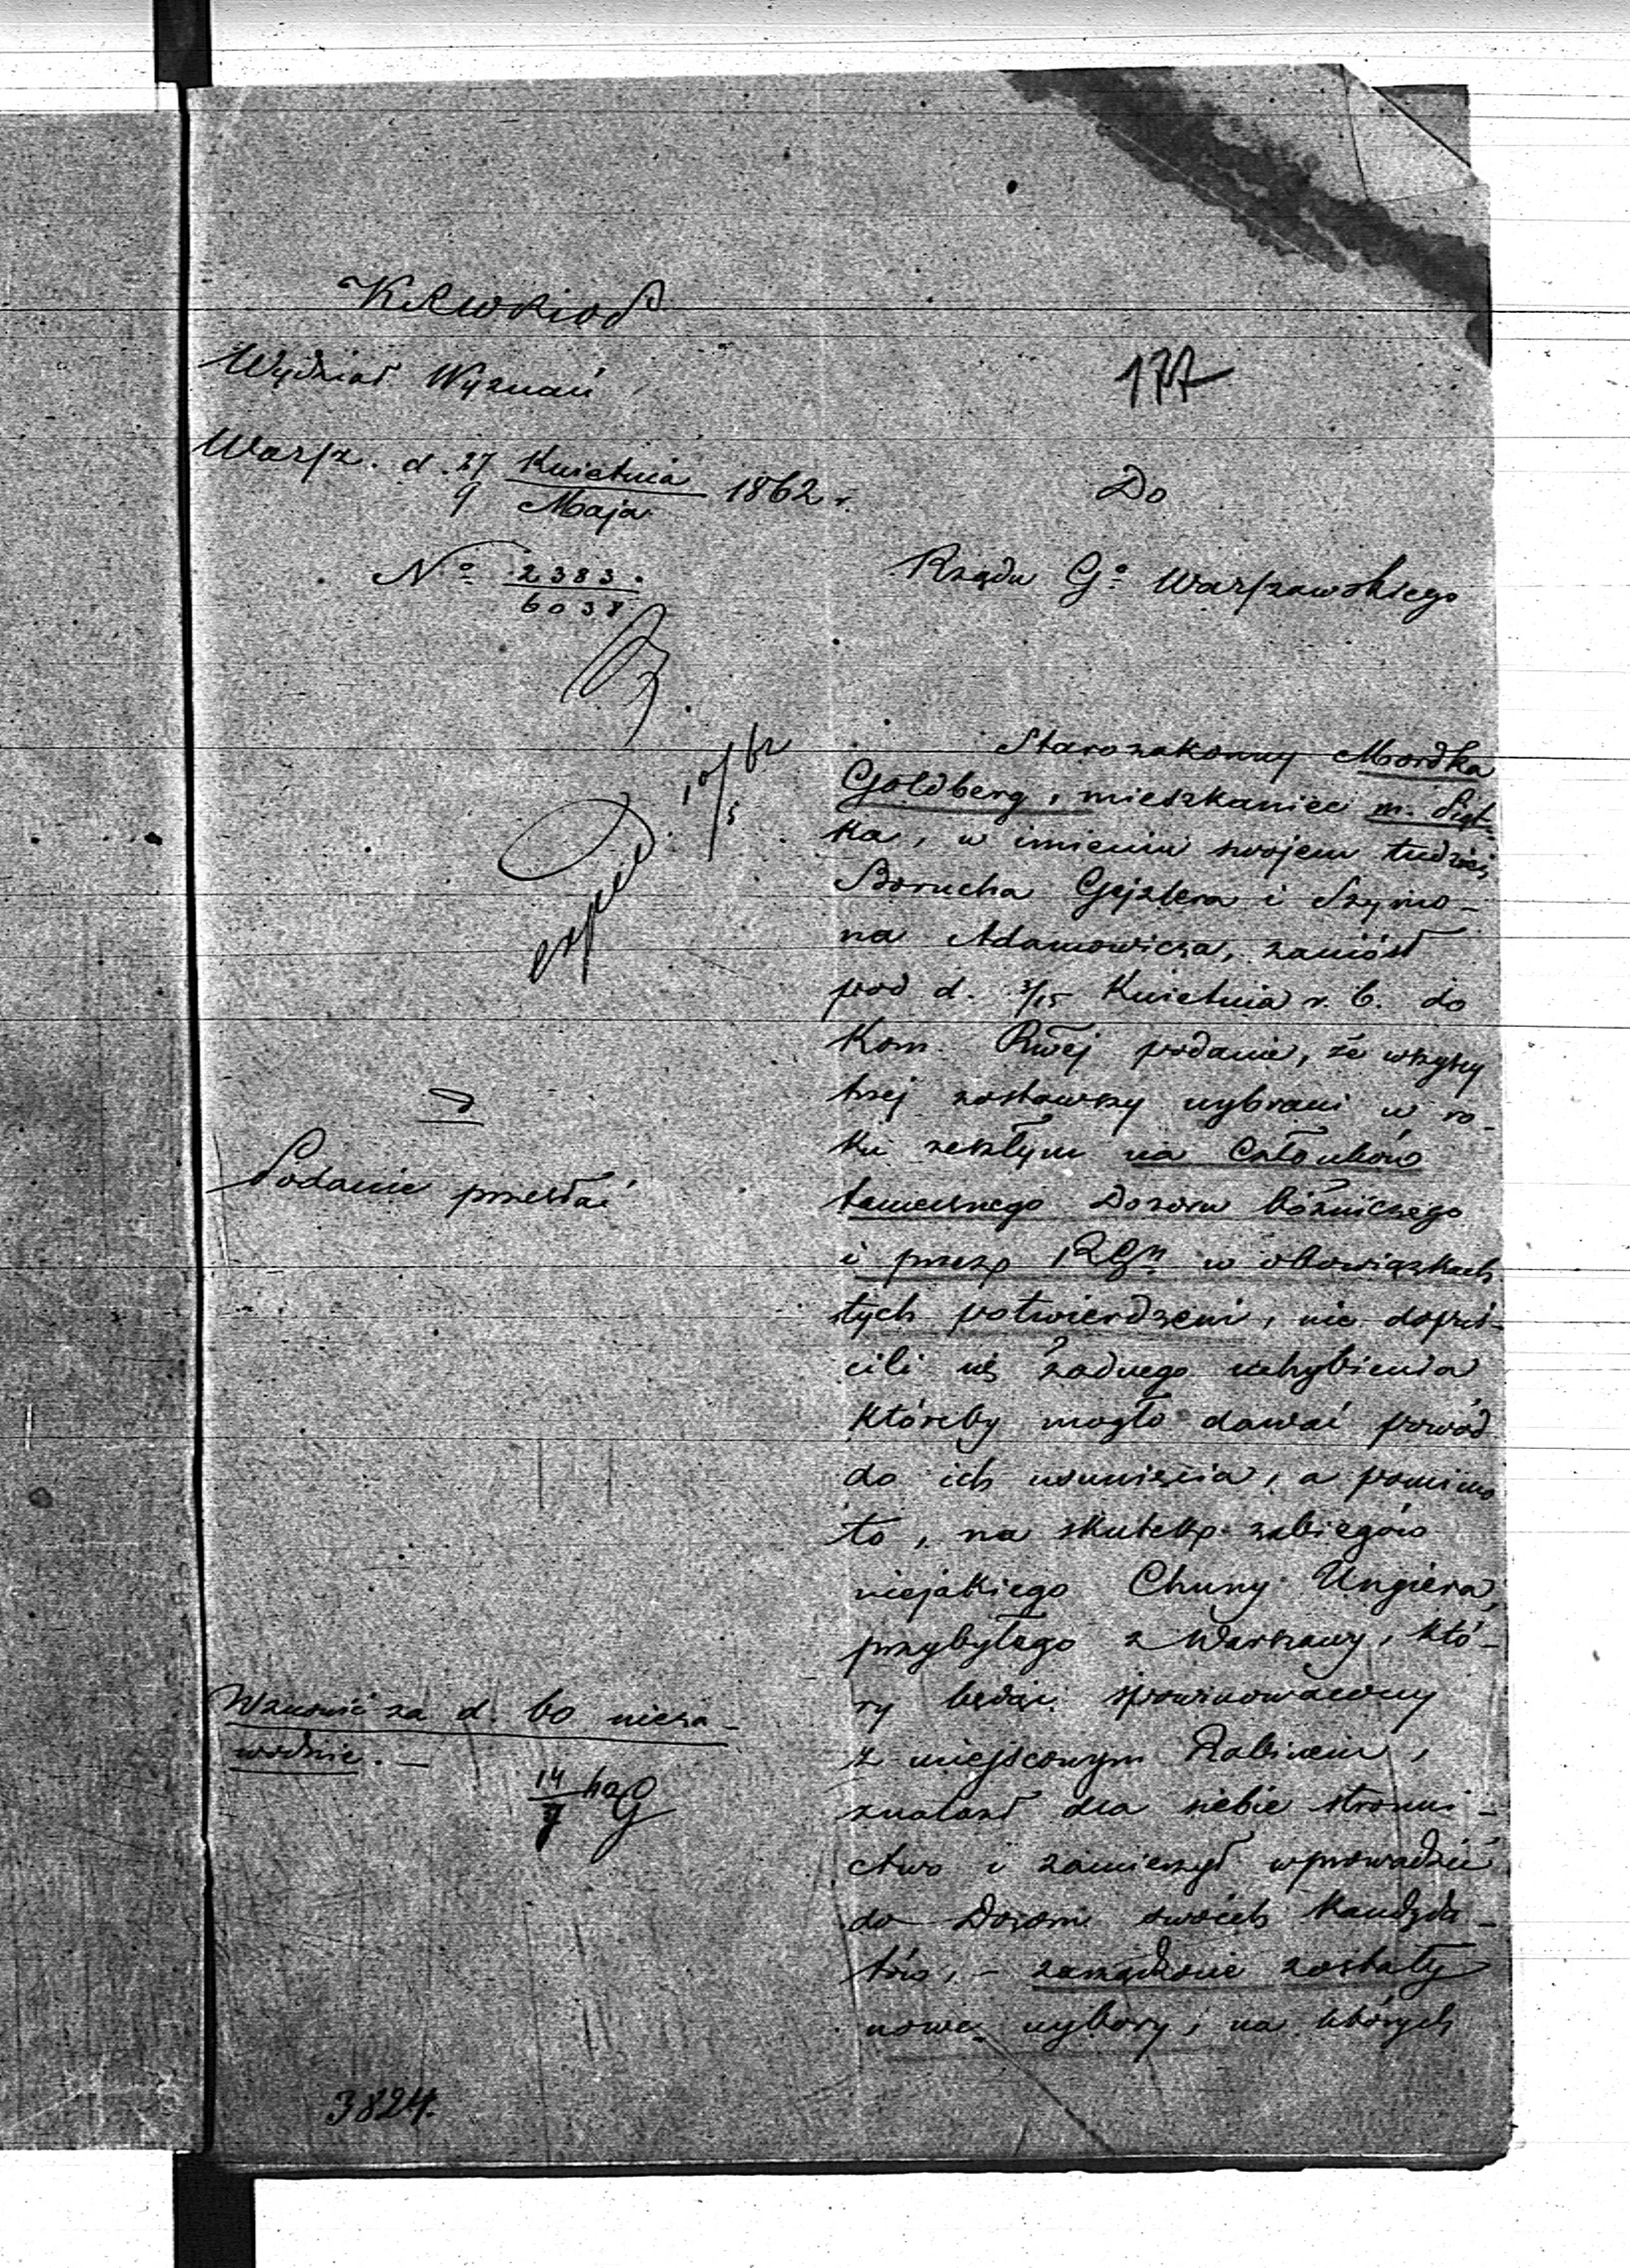 KRWRiOP
Wydział Wyznań
177
Warsz. d. 27 Kwietnia 1862 r.
9 Maja
Do
No 2383.
6038
Rządu Go Warszawskiego
10/5 62
exped
Starozakonny Mordka
Goldberg, mieszkaniec m. Piąt-
ka, w imieniu swojem tudzież
Borucha Gejzlera i Szymo-
na Adamowicza, zaniósł
pod d. 3/15 Kwietnia r. b. do
Kom. Rwej podanie, że wszyscy
trzej zostawszy wybrani w ro-
ku zeszłym na Członków
tamecznego Dozoru bóżniczego
i przez RGn w obowiązkach
tych potwierdzeni, nie dopuś-
cili się żadnego uchybienia
któreby mogło dawać powód
do ich usunięcia, a pomimo
to, na skutek zabiegów
niejakiego Chuny Ungiera,
przybyłego z Warszawy, któ-
ry będąc spowinowacony
z miejscowym Rabinem,
znalazł dla siebie stronni-
ctwo i zamierzył wprowadzić
do Dozoru swoich kandyda-
tów, - zarządzone zostały
nowe wybory, na których
Podanie przesłać
Wznowić za d. 60 nieza-
wodnie. -
14/7 62
3824.